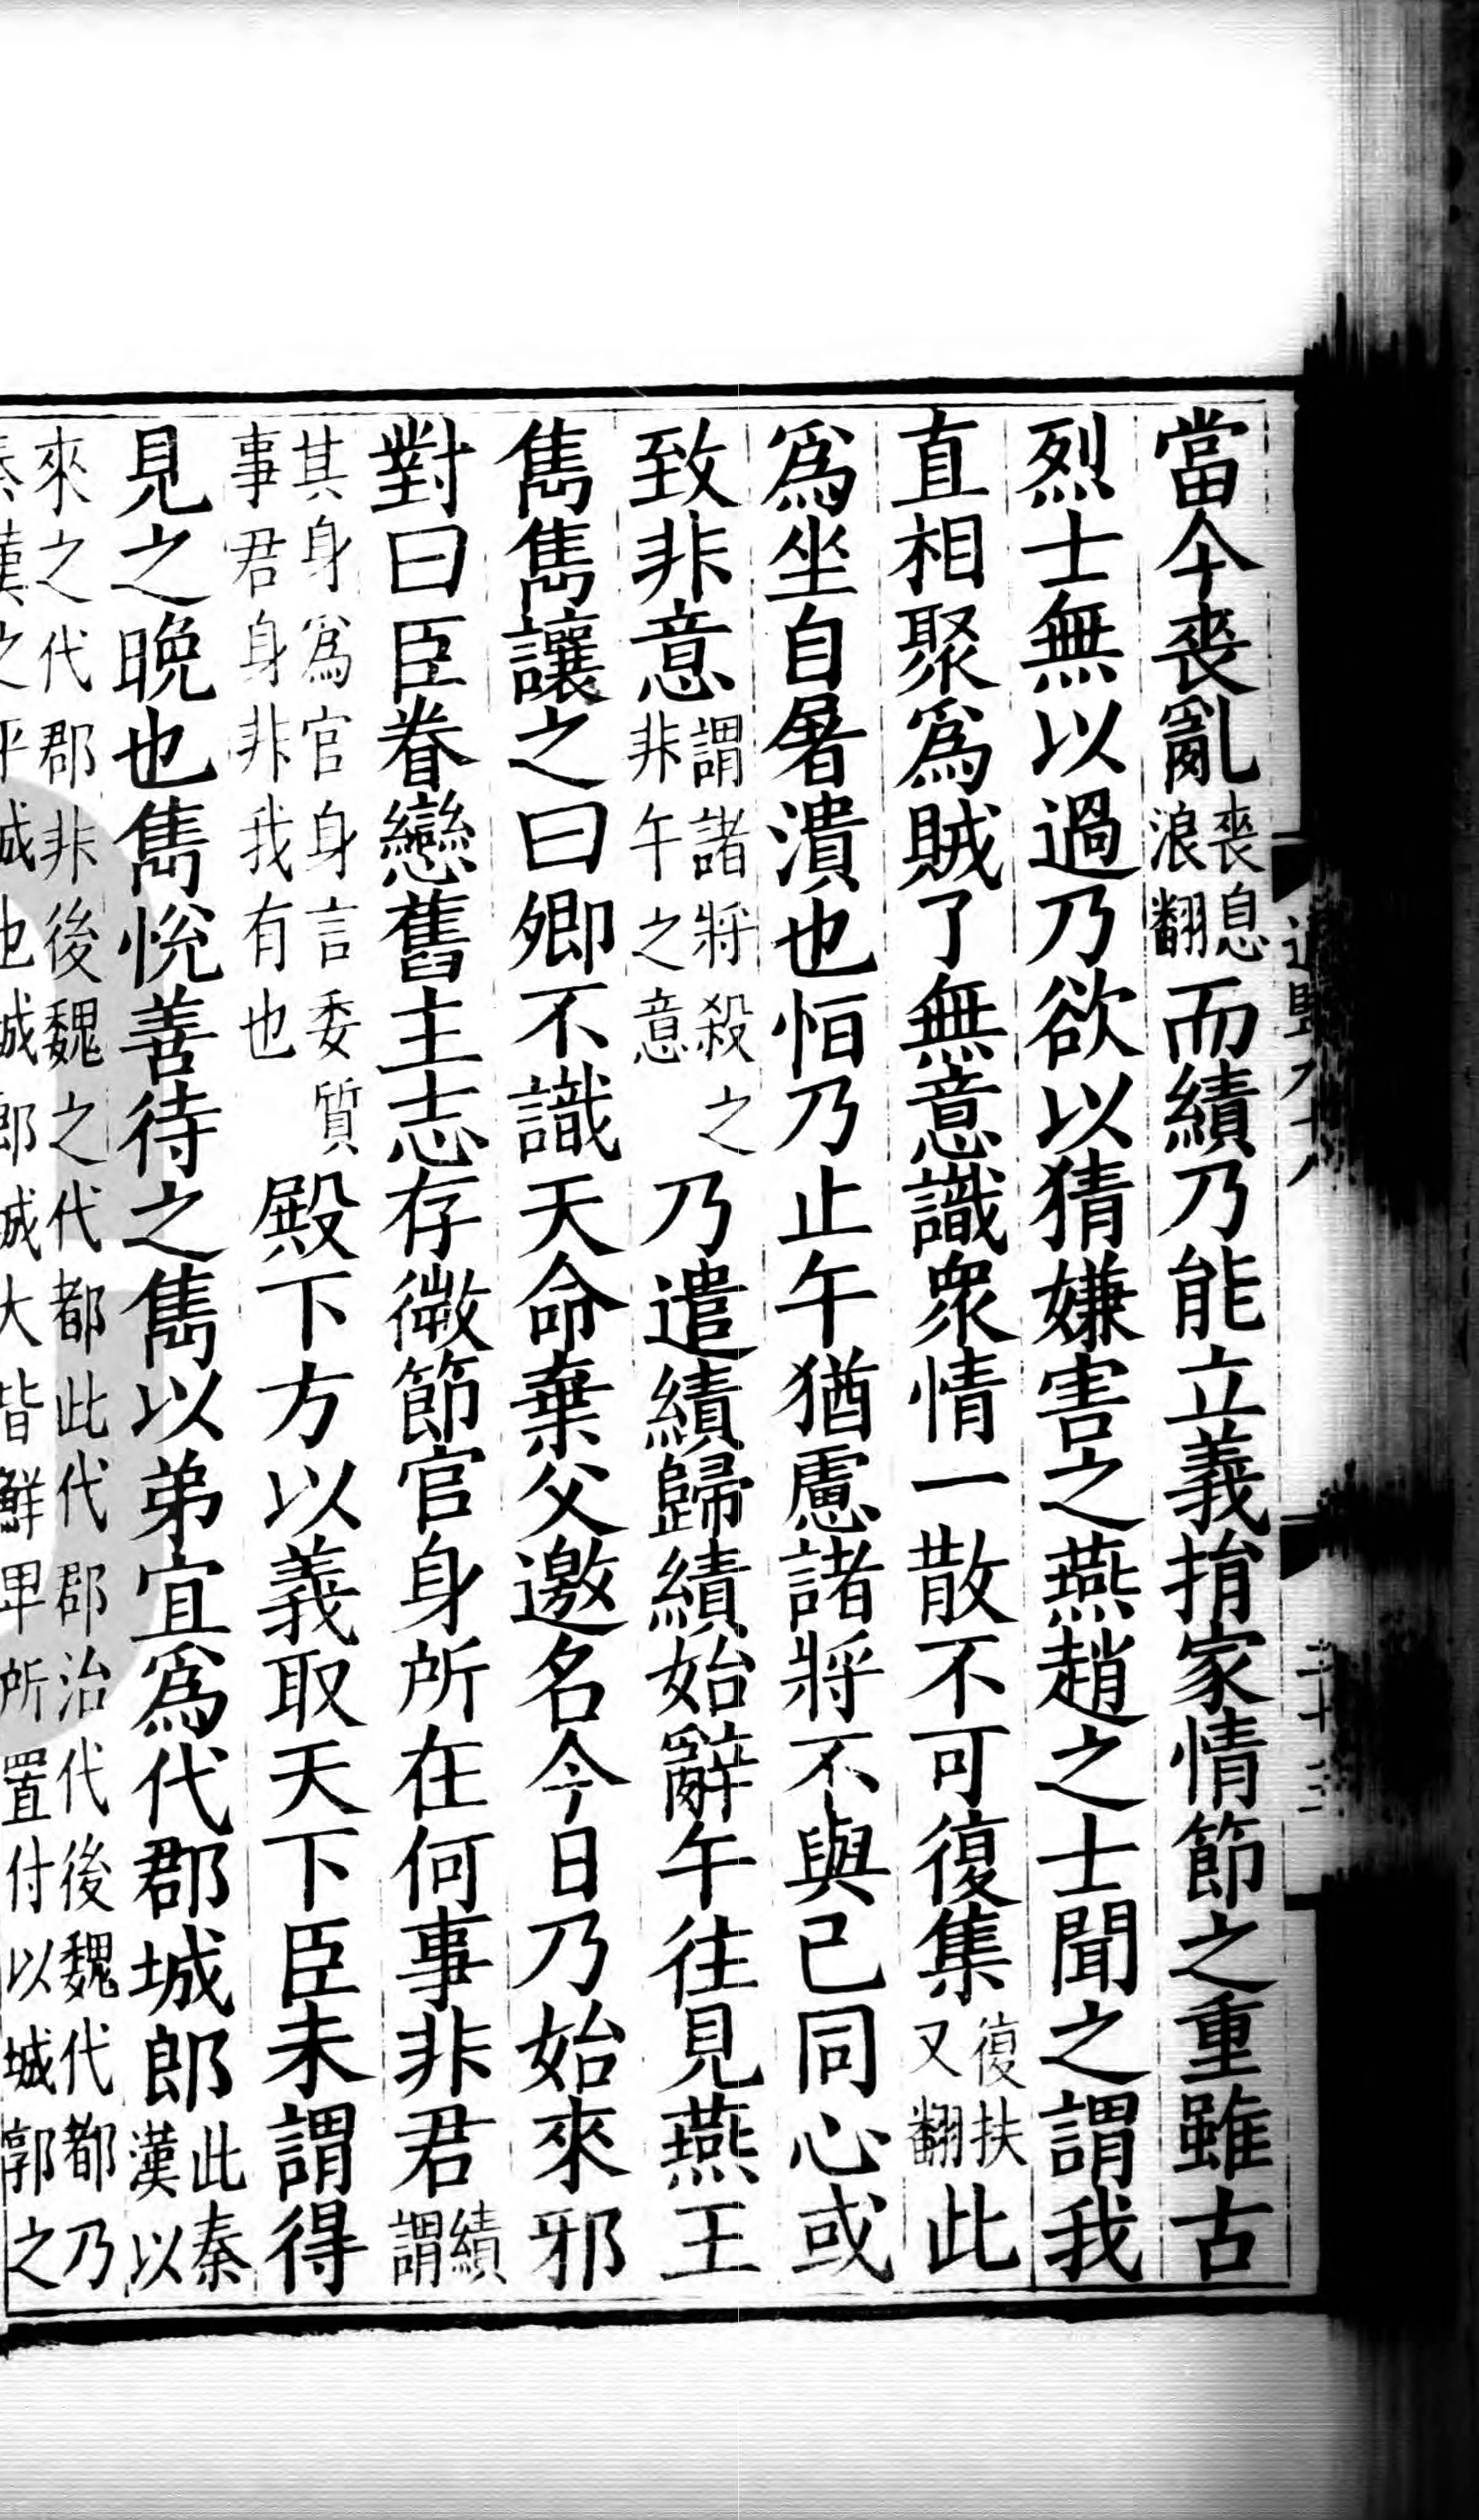 當今喪亂喪息浪翻而績乃能立義捐家情節之重雖古
烈士無以過乃欲以猜嫌害之燕趙之士聞之謂我
直相聚爲賊了無意識衆情一散不可復集復扶又翻此
爲坐自屠潰也恒乃止午猶慮諸將不與己同心或
致非意謂諸將殺之非午之意乃遣績歸績始辭午往見燕王
雋雋讓之曰卿不識天命棄父邀名今日乃始來邪
對曰臣眷戀舊主志存微節官身所在何事非君績謂
其身爲官身言委質事君身非我有也殿下方以義取天下臣未謂得
見之晚也雋悅善待之雋以弟宜爲代郡城郎此秦漢以
來之代郡非後魏之代都此代郡治代後魏代都乃秦漢之平城也城郎城大皆鮮卑所置付以城郭之